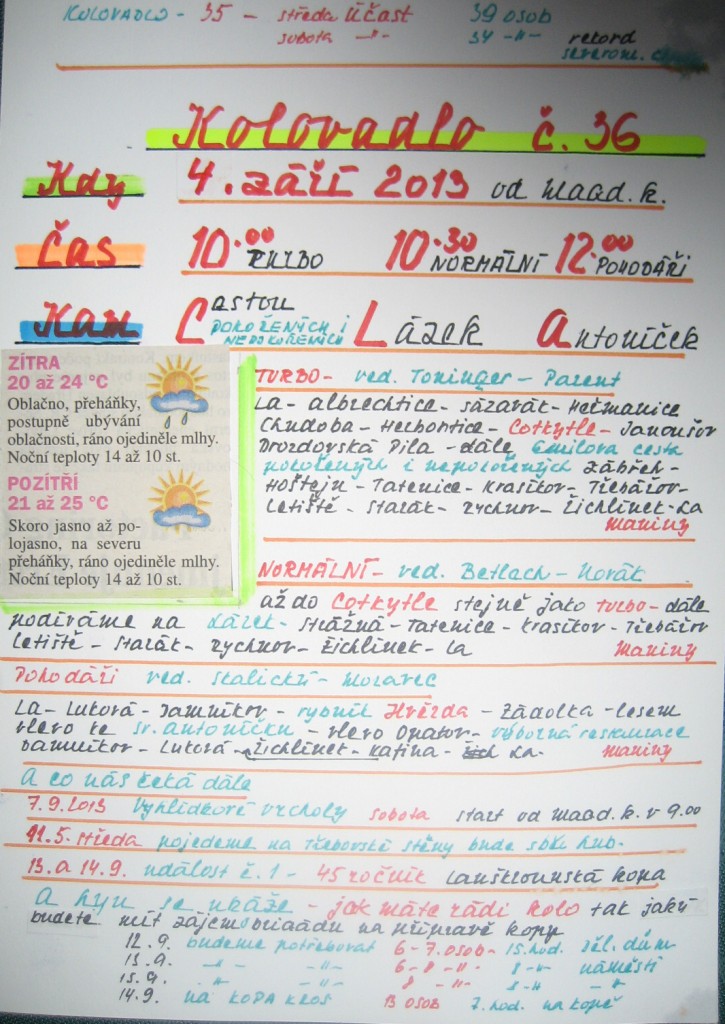 KOLOVADLO - 35 - středa ÚČAST 39 OSOB
sobota -"- 34 -"- rekord
severom.
Kolovadlo č. 36
Kdy 4. září 2013 od Maad. k.
Čas 10.00 TURBO 10.30 NORMÁLNÍ 12.00 POHODÁŘI
Kam Castou POKOŘENÝCH I NEPOKOŘENÝCH Lázek Antoníček
ZÍTRA
20 až 24 °C
Oblačno, přeháňky,
postupně ubývání
oblačnosti, ráno ojediněle mlhy.
Noční teploty 14 až 10 st.
POZÍTŘÍ
21 až 25 °C
Skoro jasno až po-
lojasno, na severu
přeháňky, ráno ojediněle mlhy.
Noční teploty 14 až 10 st.
TURBO - ved. Toninger - Parent
La - albrechtice - sázavák - Heřmanice
Chudoba - Herbortice - Cotkytle - Janoušov
Drozdovská Pila - dále Emilova cesta
pokořených i nepokořených Zábřeh -
Hoštejn - Tatenice - Krasíkov - Třebářov -
Letiště - starák - rychnov - Žichlínek - La
Maniny
NORMÁLNÍ - ved. Betlach - Novák
až do Cotkytle stejně jako turbo - dále
podíváme na Lázek - strážná - Tatenice - krasíkov - Třebářov
Letiště - starák - rychnov - Žichlínek - La Maniny
Pohodáři ved. Skalický - Moravec
La - Luková - Damníkov - rybník Hvězda - Zádolka - lesem
vlevo ke sv. antoníčku - vlevo Opatov - výborná restaurace
Damníkov - Luková - Žichlínek - Kafina - La. Maniny
A co nás čeká dále
7.9.2013 Vyhlídkové vrcholy sobota start od Maad. k. v 9.00
11.5. středa pojedeme na Třebovské stěny bude sbír. hub.
13. a 14.9. událost č. 1 - 45 ročník Lanškrounská kopa
A nyní se ukáže - jak máte rádi kolo tak jaký
budete mít zájem o brigádu na přípravě kopy
12.9. budeme potřebovat 6-7. osob - 15. hod. děl. dům
13.9. -"- -"- 6-8 -"- 8 -"- náměstí
13.9. -"- -"- 8 -"- 8 -"- -"-
14.9. na KOPA KROS 13 OSOB 7. hod. na kopě